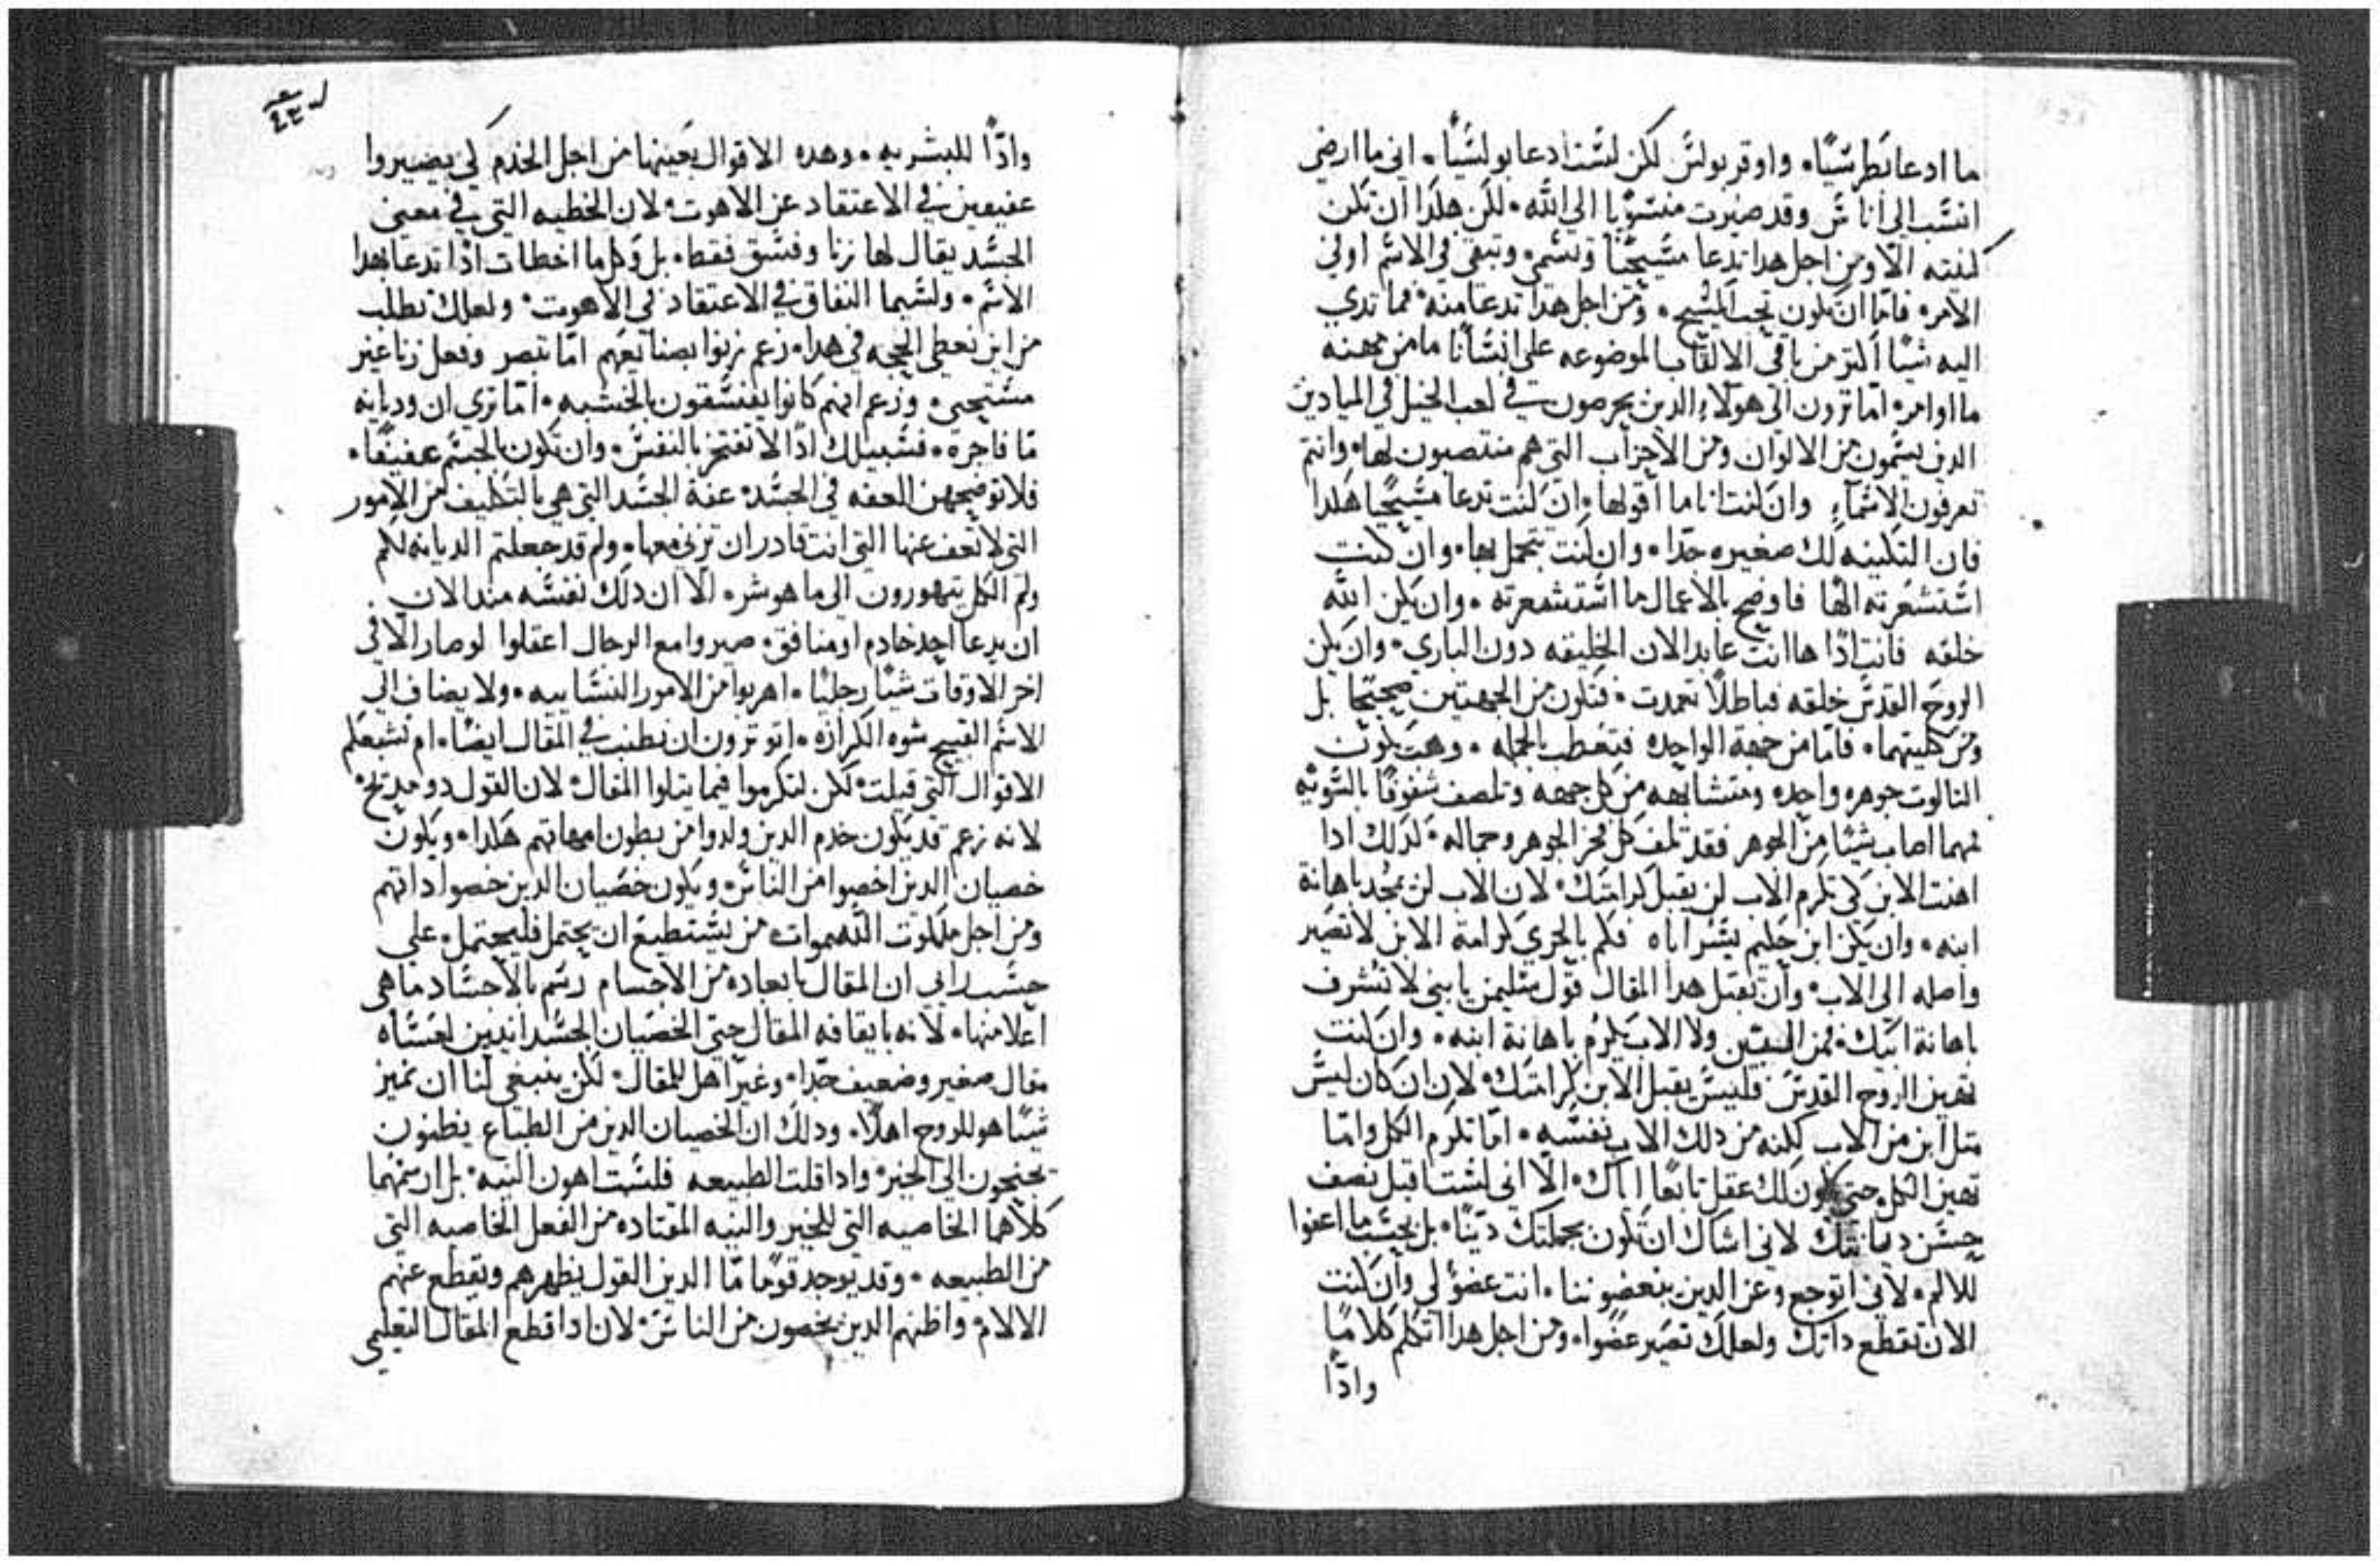 ما ادعا بطرسيًا. واوقر بولس لكن لست ادعا بولسيًا. اني ما ارضي
انسب الى اناس وقد صيرت منسوبًا الي الله. لكن هكذا ان تكن
لقبته الاه ومن اجل هدا تدعا مسيحيًا وتسمى وتبقى في الاسم اولى
الامر. فاما ان تكون تحب المسيح. ومن اجل هدا تدعا منه. فما تدي
اليه شيًا اكتر من باقي الالقاب الموضوعه على انسانا ما من مهنه
ما اوامر. اما ترون الى هولاء الدين يحرصون في لعب الخيل في الميادين
الدين يسمون من الالوان ومن الاحزاب التي هم منتصبون لها. وانتم
تعرفون الاسماء وان كنت انا ما اقولها. ان كنت تدعا مسيحيًا هكدا
فان التكنيه لك صغيره جدًا. وان كنت تتجمل بها. وان كنت
استشعرته الهًا فاوضح بالاعمال ما استشعرته. وان يكن الله
خلقه فانت ادًا ها انت عابد الان الخليقه دون الباري. وان يكن
الروح القدس خلقه فباطلًا تعمدت. فتكون من الجهتين صحيحًا بل
ومن كليتهما. فاما من جهة الواحده فتعطب بالجمله. وهب يكون
التالوت جوهره واحده ومتشابهه من كل جهه وتلمف شفوفًا بالسويه
مهما اصاب شيًا من الجوهر فقد تلف كل فخر الجوهر وجماله. لدلك ادا
اهنت الابن كي تكرم الاب لن يقبل كرامتك. لان الاب لن يمجد باهانة
ابنه. وان يكن ابن حكيم يسر اباه فكم بالحري كرامة الابن لا تصير
واصله الى الاب. وان تقبل هدا المقال قول سليمن يا بني لا تشرف
باهانة ابيك. فمن ولا الاب يكرم باهانة ابنه. وان كنت
تهين الروح القدس فليس يقبل الابن كرامتك. لان ان كان ليس
متل ابن من الاب لكنه من دلك الاب نفسه. اما تكرم الكل واما
تهين الكل. حتى يكون لك عقل تابعًا اياك. الا اني لست اقبل نصف
حسن ديانتك لاني اشاك ان تكون بجملتك ديّنًا. بل بحيت ما اعفوا
للالم. لاني اتوجع وعن الدين يبغضوننا. انت عضو لي وان كنت
الان تقطع داتك ولعلك تصير عضوا. ومن اجل هدا اتكلم كلامًا
وادًا
وادًا للبشريه. وهده الاقوال بعينها من اجل الخدم كي يصيروا
عفيفين في الاعتقاد عن الاهوت. لان الخطيه التي في معنى
الجسد يقال لها زنا وفسق فقط. بل وكل ما اخطات ادًا تدعا بهدا
الاسم. ولسيما النفاق في الاعتقاد في الاهوت. ولعلك تطلب
من اين نعطي الحجه في هدا. زعم زنوا بصنايعهم اما تبصر وفعل زنا غير
مستحي. وزعم انهم كانوا يفسقون بالخشبه. اما ترى ان وديانه
ما فاجره. فسبيلك ادًا لا تفتخر بالنفس. وان تكون بالجسم عفيفًا.
فلا توضحهن العفه في الجسد. عفة الجسد التي هي بالتكليف من الامور
التي لا تعف عنها التي انت قادر ان تزني معها. ولم قد جعلتم الديانه لكم
ولم الكل يتهورون الى ما هو شر. الا ان دلك نفسه مند الان
ان يدعا احد خادم او منافق. صيروا مع الرجال اعقلوا لو صار الا في
اخر الاوقات شيًا رجليًا. اهربوا من الامور النساييه. ولا يضاف الى
الاسم القبيح شوه الكرازه. اتوترون ان نطنب في المقال ايضًا. ام تشبعكم
الاقوال التي قيلت. لكن لتكرموا فيما يتلوا المقال. لان القول دو مديح.
لانه زعم قد يكون خدم الدين ولدوا من بطون امهاتهم هكدا. ويكون
خصيان الدين اخصوا من الناس. ويكون خصيان الدين خصوا داتهم
ومن اجل ملكوت السموات. من يستطيع ان يحتمل فليحتمل. على
حسب رايي ان المقال بابعاده من الاجسام رسم بالاجساد ما هي
اعلا منها. لانه بايقافه المقال حتى الخصيان الجسدانيين لعساه
مقال صغير وضعيف جدًا. وغير اهل للمقال. لكن ينبغي لنا ان نميز
شيًا هو للروح اهلًا. ودلك ان الخصيان الدين من الطباع يظنون
يجنحون الى الخير. وادا قلت الطبيعه فلست اهون النيه. بل ارسمهما
كلاهما الخاصيه التي للخير والنيه المقتاده من الفعل الخاصيه التي
من الطبيعه. وقد يوجد قومًا ما الدين القول يطهرهم ويقطع عنهم
الالام. واظنهم الدين يخصون من الناس. لان ادا قطع المقال التعليمي